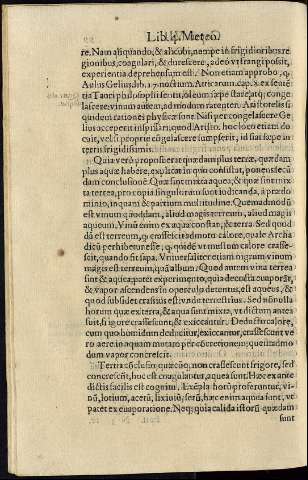 Lib. 4. Meteo.
re. Nam aliquando, & alicubi, nempe in frigidioribus re
gionibus, coagulari, & durescere, adeò vt frangi possit,
experientia deprehensum est. Non etiam approbo, q,
Aulus Gelius, lib. 17. noctium Atticarum cap. 8. ex senten
tia Tauri philosophi scribit, oleum sepe statęque conge
lascere: vinum autem, admodum rarenter. Aristotelis si
quidem rationes physicę sunt. Nisi per congelascere Ge
lius acceperit inspissari: quod Aristo. hoc loco etiam do
cuit, vel si proprie congelascere sumpserit, id fiat sępe in
terris frigidissimis.
Quia verò proposuerat quędam plus terrae, quędam
plus aquae habere, explicat in quo consistat, ponens secū
dam conclusionem. Quae sunt mixta aquea, & quae sunt mix
ta terrea, pro copia singulorum sunt iudicanda, à prędo
minio, in quam & partium multitudine. Quemadmodū
est vinum quoddam, aliud magis terreum, aliud magis
aqueum. Vinū enim ex aqua constat, & terra. Sed quod
dā est terreum, q, crassescit admoto calore, quale Archa
dicū perhibetur esse, q, quidē vt mustum calore crasse-
scit, quando fit sapa. Vniuersaliter etiam nigrum vinum
magis est terreum, quā album. Quod autem vina terrea
sint & aquea patet experimento, quia decocta euaporāt,
& vapor ascendens in operculo detentus, est aqueus, &
quod subsidet crassius est in vado terrestrius. Sed nōnulla
horum quae ex terra, & aqua sunt mixta, vt dictum antea
fuit, si igne crassescunt, & exiccantur. Deducto calore,
cum quo humidum deducitur, exiccantur, crassescunt ve
ro aere in aquam mutato per cōcretionem: quemadmo
dum vapor concrescit.
Tertia cōclusio. quaecūq, non crassescunt frigore, sed
concrescūt, huc est coagulantur, aquea sunt. Haec ex ante
dictis facilis est cognitu. Exēpla horū proferuntur, vi-
nū, lotium, acetū, lixiuiū, serū, haec enim aquida sunt, vt
patet ex euaporatione. Neq, quia calida istorū quędam
sunt